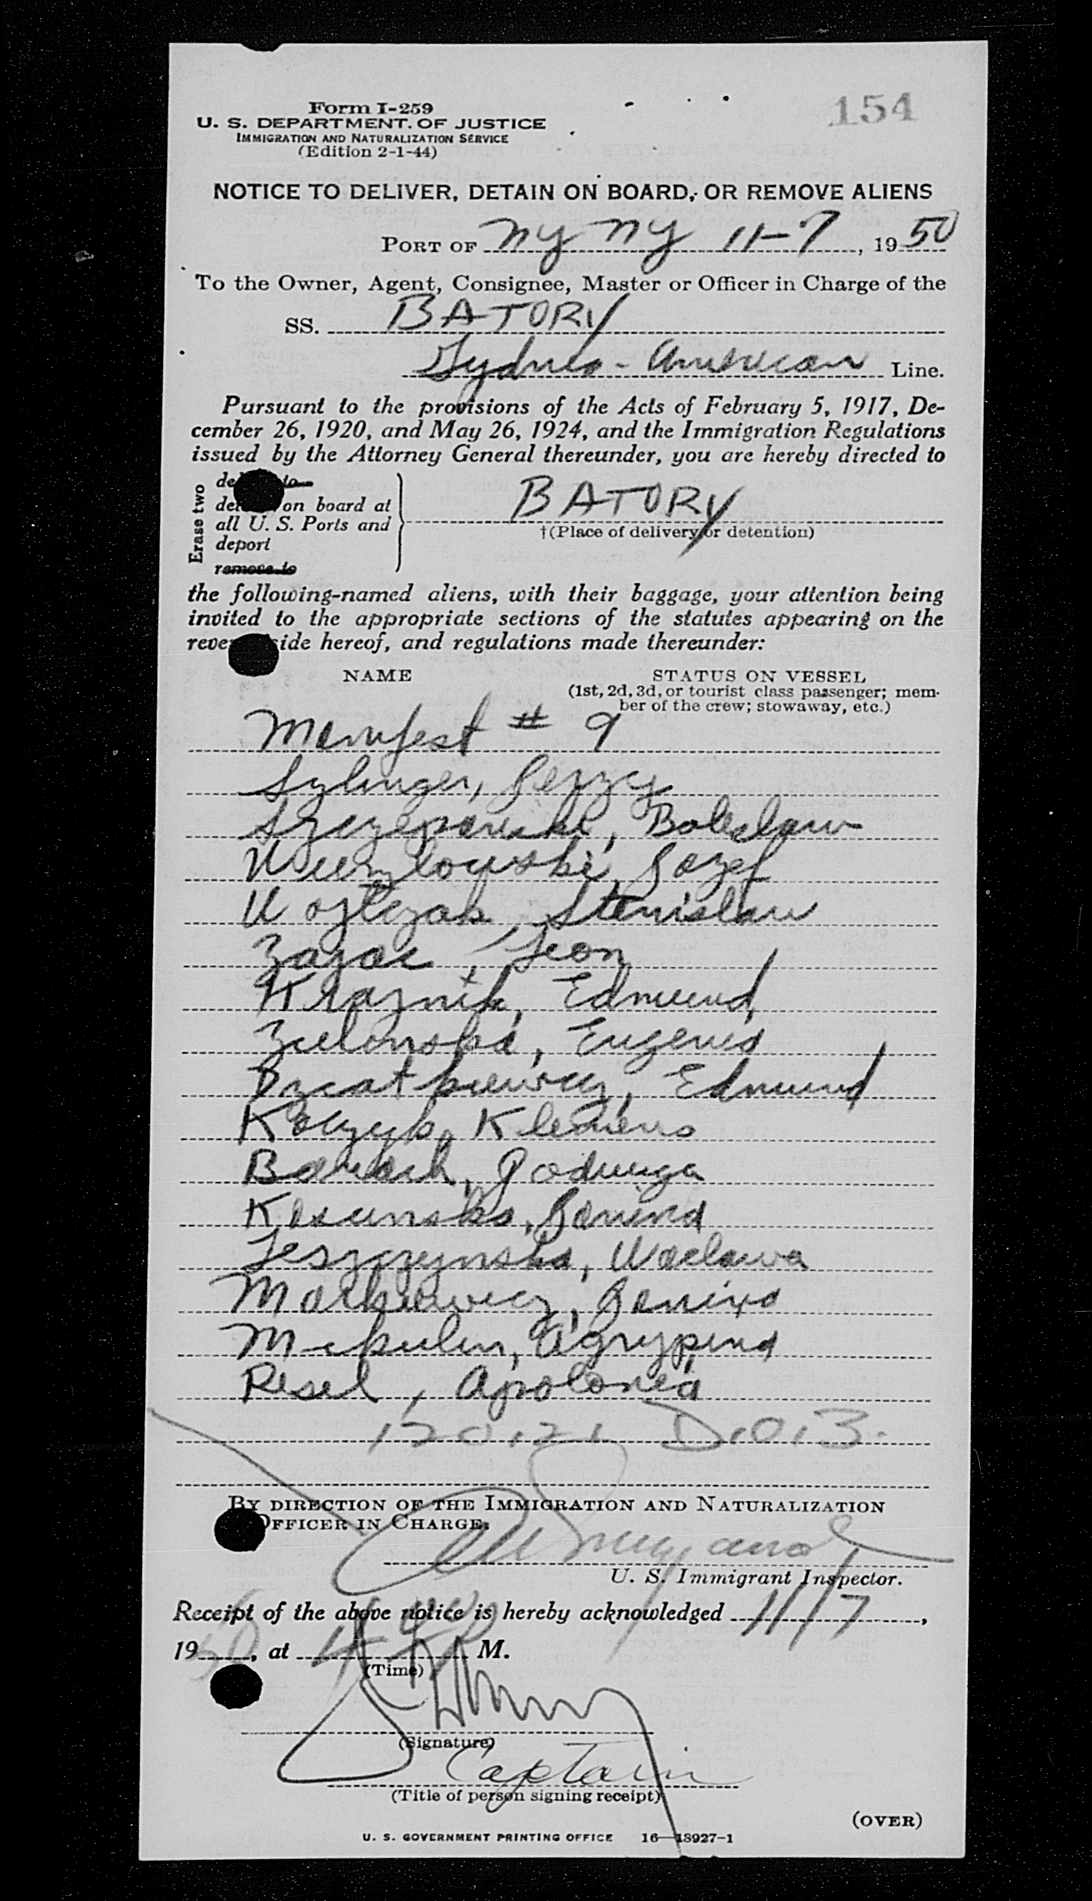 154
Form I-259
U. S. DEPARTMENT OF JUSTICE
IMMIGRATION AND NATURALIZATION SERVICE
(Edition 2-1-44)
NOTICE TO DELIVER, DETAIN ON BOARD, OR REMOVE ALIENS
PORT OF NY NY 11-7, 1950
To the Owner, Agent, Consignee, Master or Officer in Charge of the
SS. BATORY
American Line.
Pursuant to the provisions of the Acts of February 5, 1917, De-
cember 26, 1920, and May 26, 1924, and the Immigration Regulations
issued by the Attorney General thereunder, you are hereby directed to
Erase two
to
on board at
all U. S. Ports and
deport
remove to
BATORY
†(Place of delivery or detention)
the following-named aliens, with their baggage, your attention being
invited to the appropriate sections of the statutes appearing on the
side hereof, and regulations made thereunder:
NAME
STATUS ON VESSEL
(1st, 2d, 3d, or tourist class passenger; mem-
ber of the crew; stowaway, etc.)
Manifest # 9
Szlinger, Jerzy
Szczepanski, Boleslaw
Jozef
Wojtczak, Stanislaw
Zajac, Leon
Kraznik, Edmund
Zielonska, Eugenia
Edmund
Klemens
Banach, Jadwiga
Janina
Leszczynska, Waclawa
Markiewicz, Janina
Mikulin, Agrypina
Resel, Apolonia
BY DIRECTION OF THE IMMIGRATION AND NATURALIZATION
OFFICER IN CHARGE.
U. S. Immigrant Inspector.
Receipt of the above notice is hereby acknowledged 11/7,
1950, at M.
(Time)
(Signature)
Captain
(Title of person signing receipt)
(OVER)
U. S. GOVERNMENT PRINTING OFFICE 16—18927-1